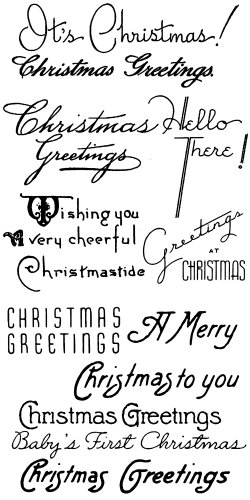 It's Christmas!
Christmas Greetings.
Christmas Greetings
Hello There!
Wishing you
A very cheerful
Christmastide
Greetings
AT
CHRISTMAS
CHRISTMAS
GREETINGS
A Merry
Christmas to you
Christmas Greetings
Baby's First Christmas
Christmas Greetings